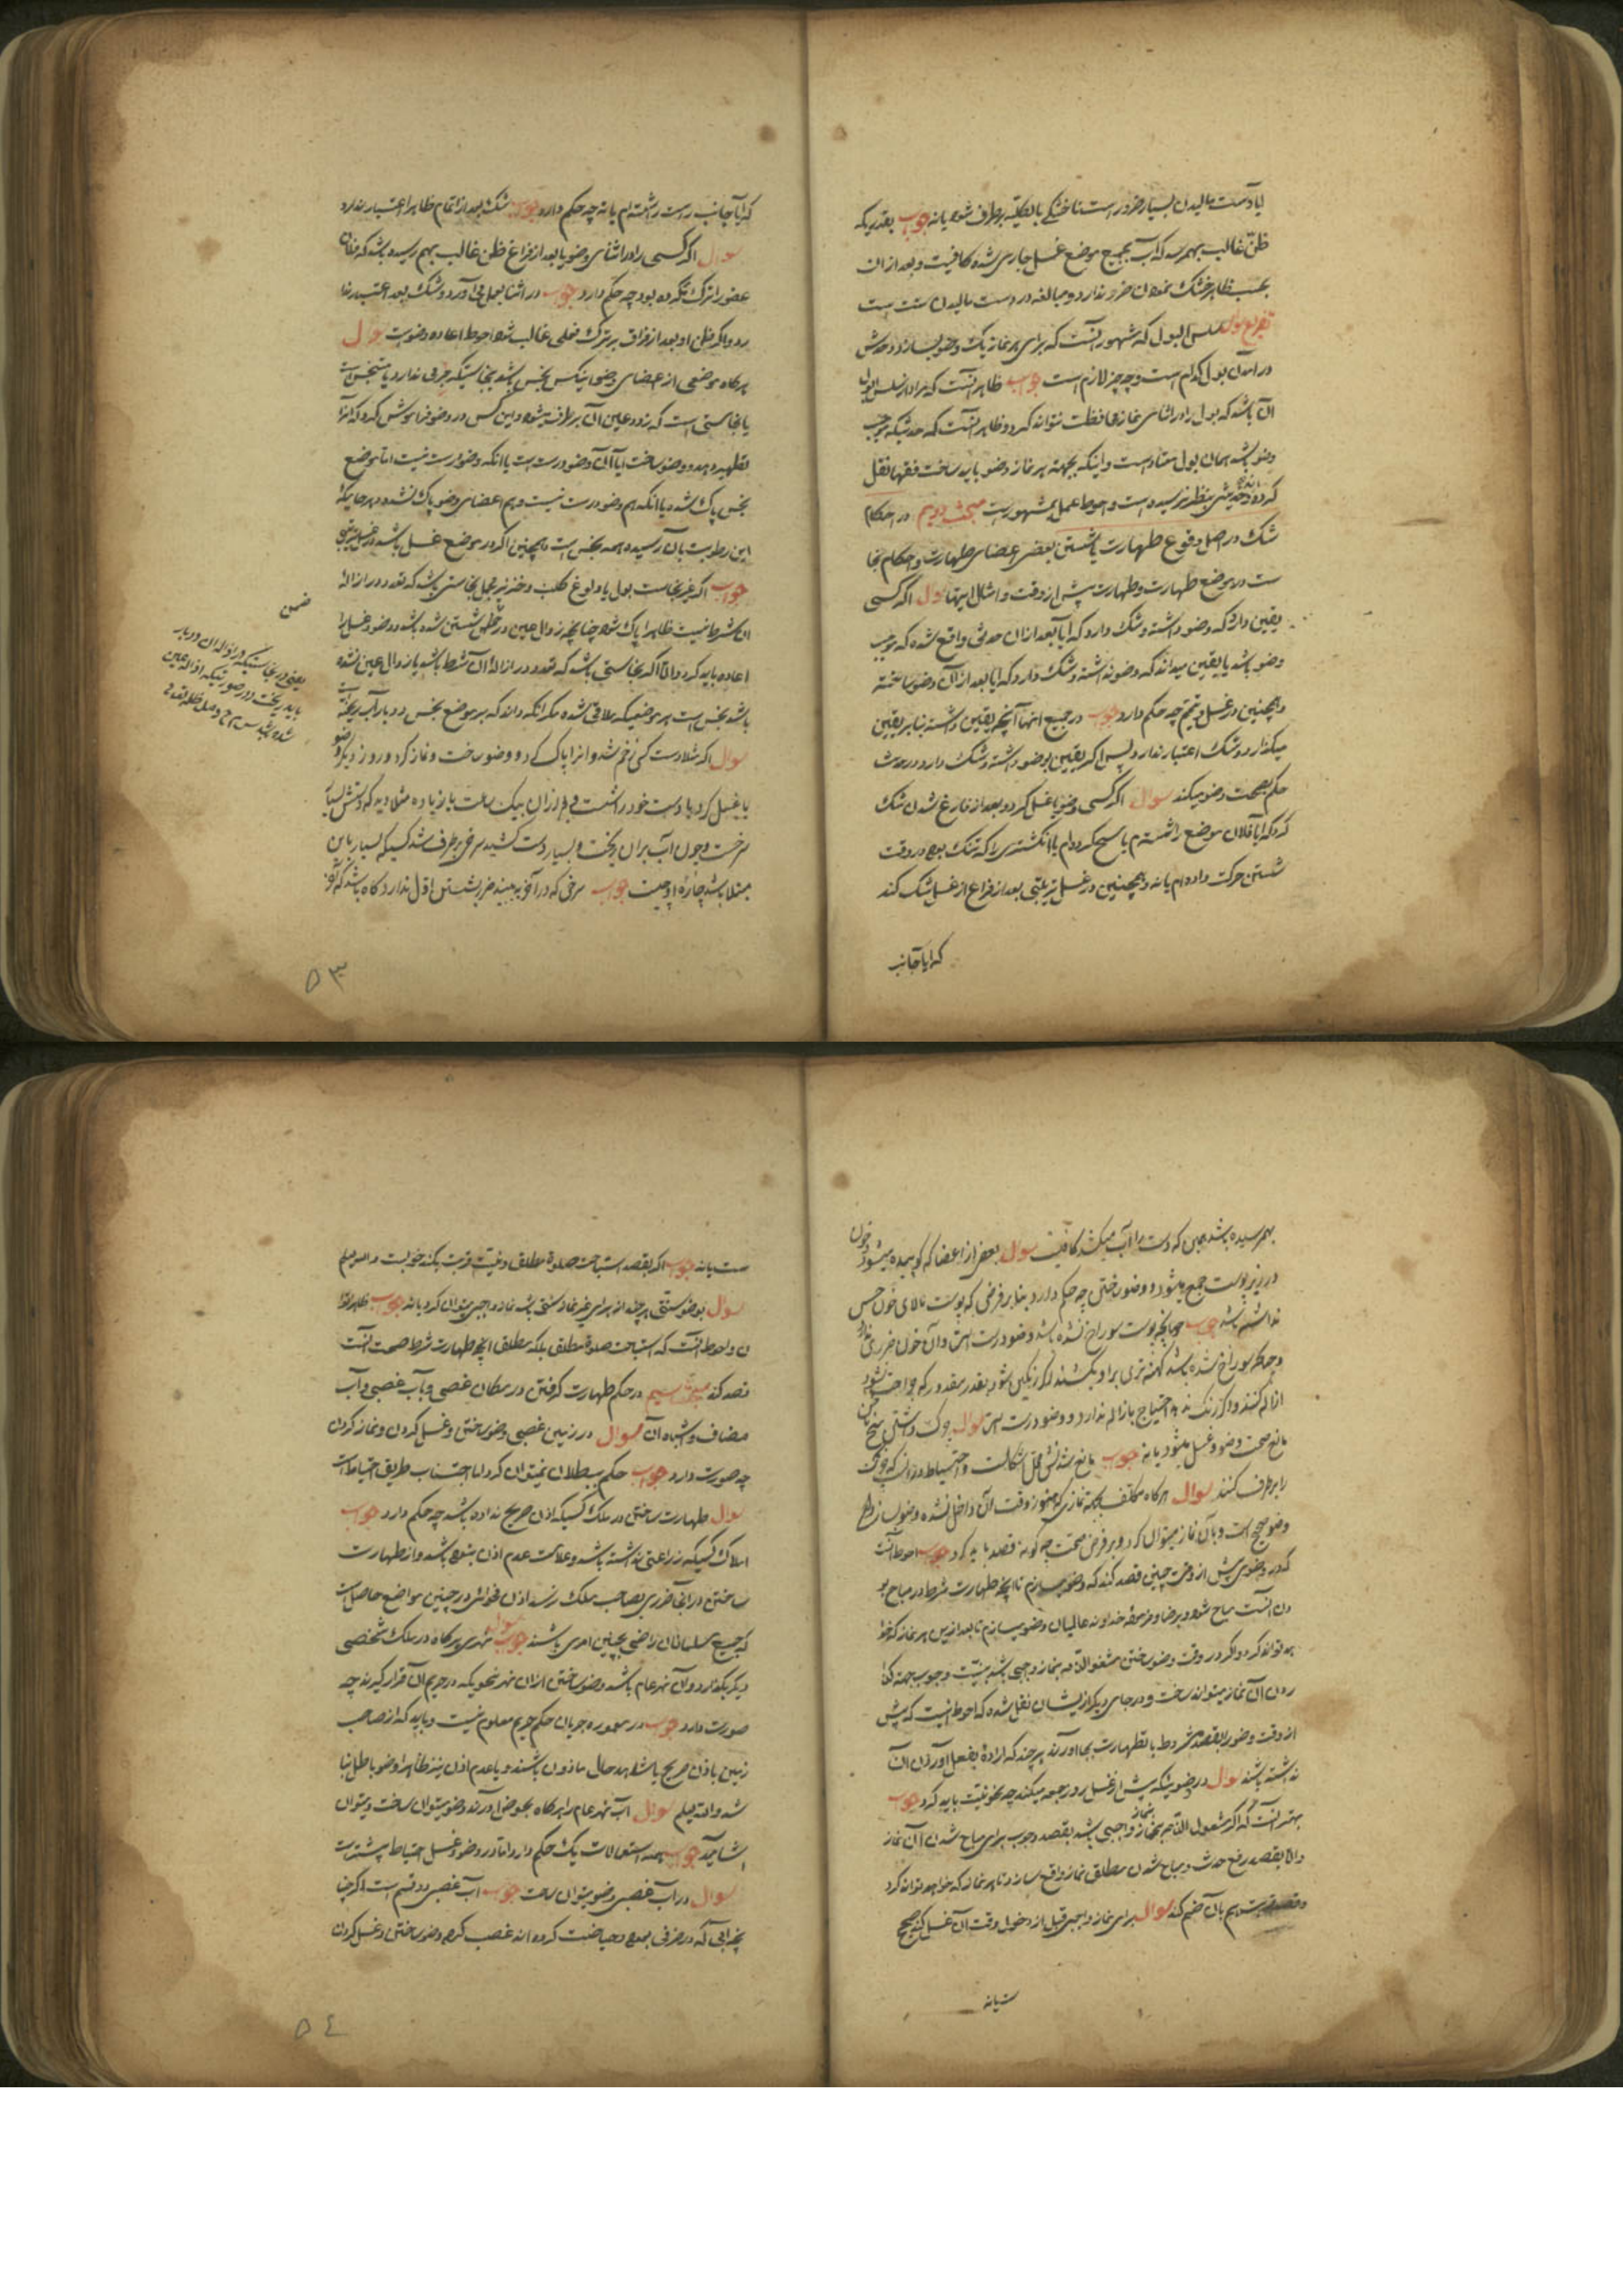 ایا دست مالیدن بسیار ضرور است تا خشکی بالکلیه برطرف شود یا نه جواب بقدریکه
ظن غالب بهم رسد که آب بجمیع موضع غسل جاری شده کافیست و بعد از ان
بحسب ظاهر خشک نمودن ضرر ندارد و مبالغه در دست مالیدن سنت است
سلس البول که مشهور آنست که برای هر نماز یک وضو بسازد و حدش
در آمدن بول کدام است و چه چیز لازم است جواب ظاهر آنست که مراد از سلس البول
آن باشد که بول را در اثنای نماز محافظت نتواند کرد و ظاهر آنست که حدثیکه موجب
وضو باشد همان بول معتاد است و اینکه بجهته هر نماز وضو باید ساخت فقها نقل
کرده اند و حدیثی بنظر نرسیده است و احوط عمل بمشهور است مبحث دویم در احکام
شک در اصل وقوع طهارت یا شستن بعضی اعضای طهارت و احکام نجا
ست در موضع طهارت و طهارت پیش از وقت و امثال اینها سوال اگر کسی
یقین دارد که وضو داشته و شک دارد که ایا بعد از ان حدثی واقع شده که موجب
وضو باشد یا یقین میداند که وضو نداشته و شک دارد که ایا بعد از آن وضو ساخته
و همچنین در غسل و تیمم چه حکم دارد جواب در جمیع اینها آنچه یقین داشته بنا بر یقین
میگذارد و شک اعتبار ندارد پس اگر یقین بوضو داشته و شک دارد در حدث
حکم بصحت وضو میکند سوال اگر کسی وضو یا غسل کرد و بعد از فارغ شدن شک
کرد که ایا فلان موضع را شستم یا مسح کرده ام یا انگشتری را که تنگ بود در وقت
شستن حرکت داده ام یا نه و همچنین در غسل ترتیبی بعد از فراغ از غسل شک کند
که ایا جانب
که ایا جانب راست را شسته ام یا نه چه حکم دارد جواب شک بعد از اتمام ظاهرا اعتبار ندارد
سوال اگر کسی را در اثنای وضو یا بعد از فراغ ظن غالب بهم رسیده باشد که فلان
عضو را ترک کرده بود چه حکم دارد جواب در اثنا بعمل می آورد و شک بعد اعتبار ندا
رد و اگر ظن او بعد از فراق بر ترک فعلی غالب شده احوط اعاده وضوست سوال
هرگاه موضعی از اعضای وضو اینکس نجس باشد بنجاستیکه جرمی ندارد یا متنجس است
یا نجاستی است که زود عین آن برطرف میشود و این کس در وضو فراموش کرد که آنرا
تطهیر دهد و وضو ساخت ایا آن وضو درست است یا انکه وضو درست نیست اما موضع
نجس پاک شد یا انکه هم وضو درست نیست و هم اعضای وضو پاک نشده و هر جاییکه
این رطوبت بان رسیده همه نجس است و همچنین اگر در موضع غسل باشد در غسل ترتیبی
جواب اگر غیر نجاست بول یا ولوغ کلب و خنزیر مجمل نجاستی باشد که تعدد در ازاله
ان شرط نیست ظاهرا پاک شود چنانچه زوال عین در ضمن شستن شده باشد و وضو و غسل را
اعاده باید کرد و اما اگر نجاستی باشد که تعدد در ازاله آن شرط باشد یا زوال عین نشده
باشد نجس است هر موضعیکه ملاقی شده مگر انکه داند که بر موضع نجس دو بار آب ریخته است
سوال اگر مثلا دست کسی زخم شد و انرا پاک کرد و وضو ساخت و نماز کرد و روز دیگر وضو
یا غسل کرد یا دست خود را شست بعد از ان بیک ساعت یا زیاده مثلا دید که دستش بسیار
سرخست و چون آب بر ان ریخت و بسیار دست کشید سرخی برطرف شد کسیکه بسیار باین
مبتلا باشد چاره او چیست جواب سرخی که در آخر به بیند ضرر بشستن اول ندارد گاه باشد که آخر
ضمن
یعنی در نجاستیکه در ازاله ان دو بار
باید ریخت و در صورتیکه ازاله عین
شده باشد
۵۳
بهم رسیده باشد همین که دست را آب میکشد کافیست سوال بعضی از اعضا که کوبیده میشود و خون
در زیر پوست جمع میشود و وضو ساختن چه حکم دارد بنا بر فرضی که پوست بالای خون حس
نداشته باشد جواب چنانچه پوست سوراخ نشده باشد وضو درست است و آن خون ضرری ندارد
و چنانکه سوراخ شده باشد کهنه تری بر او بکشند اگر رنگین شود بقدر مقدور که جراحت نشود
ازاله کنند و اگر رنگ ندهد احتیاج بازاله ندارد و وضو درست است سوال چرک داشتن بیخ ناخن
مانع صحت وضو و غسل میشود یا نه جواب مانع شدنش محل اشکالست و احتیاط در آنست که چرک
را برطرف کنند سوال هرگاه مکلف بجهته نمازی که هنوز وقت آن داخل نشده وضو بسازد ایا
وضو صحیح است و بآن نماز میتوان کرد و بر فرض صحت چه گونه قصد باید کرد جواب احوط آنست
که در وضوی پیش از وقت چنین قصد کند که وضو میسازم تا آنچه طهارت شرط در مباح بو
دن آنست مباح شود و برضا و فرموده خداوند عالمیان وضو میسازم تا بعد ازین هر نماز که خوا
هد تواند کرد و اگر در وقت وضو ساختن مشغول الذمه بنماز واجبی باشد به نیت وجوب بجهته گذا
ردن آن نماز میتواند ساخت و در جای دیگر از ایشان نقل شده که احوط اینست که پیش
از وقت وضو را بقصد مشروط با لطهارت بجا اورند هر چند که اراده بفعل آوردن آن
نداشته باشند سوال در وضوئیکه پیش از غسل روز جمعه میکند چه نحو نیت باید کرد جواب
بهتر آنست که اگر مشغول الذمه بنماز واجبی باشد بقصد وجوب برای مباح شدن آن نماز
و الا بقصد رفع حدث و مباح شدن مطلق نماز واقع سازد تا هر نماز که خواهد تواند کرد
بان ضم کند سوال برای نماز واجبی قبل از دخول وقت آن غسل کند صحیح
ست یا نه
ست یا نه جواب اگر بقصد استباحت صلوة مطلق و نیت قربت بکند خوبست والله یعلم
سوال بوضو سنتی هر چند از برای غیر نماز سنتی باشد نماز واجبی میتوان کرد یا نه جواب ظاهرا توا
ن و احوط آنست که استباحت صلوة مطلق بلکه مطلق آنچه طهارت شرط صحت آنست
قصد کند مبحث سیم در حکم طهارت گرفتن در مکان غصبی و بآب غصبی و آب
مضاف و اشباه آن سوال در زمین غصبی وضو ساختن و غسل کردن و نماز کردن
چه صورت دارد جواب حکم ببطلان نمیتوان کرد اما اجتناب طریق احتیاط است
سوال طهارت ساختن در ملک کسیکه اذن صریح نداده باشد چه حکم دارد جواب
املاک کسیکه زراعتی نداشته باشد و علامت عدم اذن نبوده باشد و از طهارت
ساختن در انجا ضرری بصاحب ملک نرسد اذن فحوائی در چنین مواضع حاصل است
که جمیع مسلمانان راضی بچنین امری باشند سوال نهری هرگاه در ملک شخصی
دیگر بگذارد و آن نهر عام باشد وضو ساختن از ان نهر بنحویکه در حریم آن قرار گیرند چه
صورت دارد جواب در معموره جریان حکم حریم معلوم نیست و باید که از صاحب
زمین باذن صریح یا شاهد حال ماذون باشند و با عدم اذن نیز ظاهرا وضو باطل نبا
شد والله یعلم سوال آب نهر عام را هرگاه بحوض آورند وضو میتوان ساخت و میتوان
اشامید جواب همه استعمالات یک حکم دارد اما در وضو و غسل احتیاط بیشتر است
سوال در آب غصبی وضو میتوان ساخت جواب آب غصبی دو قسم است اگر چنا
نچه ابی که در ظرفی بوده و حیاضت کرده اند غصب کرده وضو ساختن و غسل کردن
۵٤